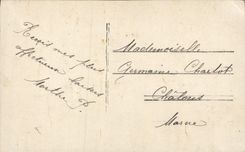 Reçois mes plus
affectueux baisers
Marthe P.
Mademoiselle
Germaine Charlot
Châlons
Marne